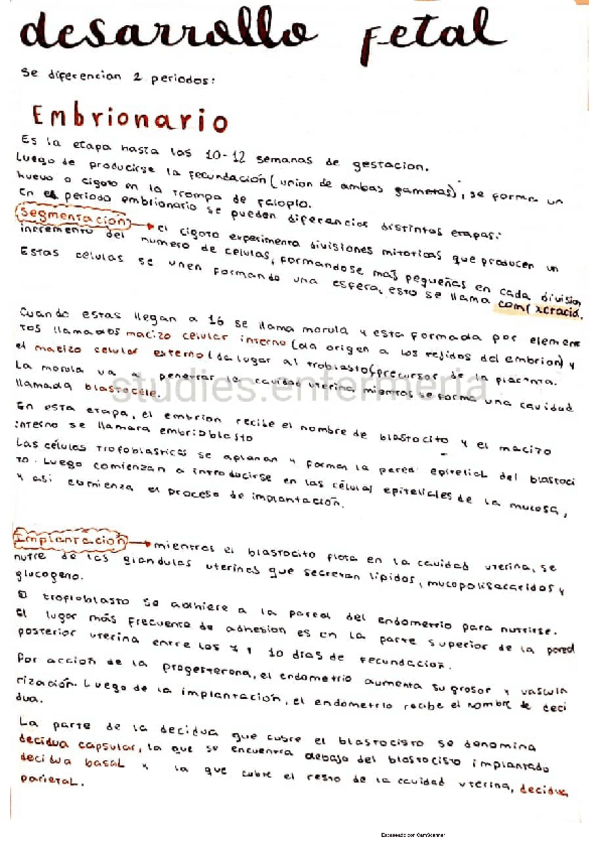 desarrollo fetal
Se diferencian 2 periodos:
Embrionario
Es la etapa hasta las 10-12 semanas de gestacion.
Luego de producirse la fecundación (union de ambas gametas), se forma un
huevo o cigoto en la trompa de falopio.
En el periodo embrionario se pueden diferenciar distintas etapas:
Segmentación → el cigoto experimenta divisiones mitoticas que producen un
incremento del numero de celulas, formandose mas pequeñas en cada division
Estas celulas se unen formando una esfera, esto se llama
Cuando estas llegan a 16 se llama morula y esta formada por elemen
tos llamados macizo celular interno (da origen a los tejidos del embrion) y
el macizo celular externo (da lugar al troblasto (precursor de la placenta.
La morula va a penetrar la cavidad uterina mientras se forma una cavidad
llamada blastocele.
studies.enfermeria
En esta etapa, el embrion recibe el nombre de blastocito y el macizo
interno se llamara embrioblasto
Las células trofoblasticas se aplanan y forman la pared epitelial del blastoci
to. Luego comienzan a introducirse en las células epiteliales de la mucosa,
y asi comienza el proceso de implantación.
Implantación → mientras el blastocito flota en la cavidad uterina, se
nutre de las glandulas uterinas que secretan lipidos, mucopolisacaridos y
glucogeno.
El trofloblasto se adhiere a la pared del endometrio para nutrirse.
El lugar más frecuente de adhesion es en la parte superior de la pared
posterior uterina entre los 7 y 10 dias de fecundacion.
Por acción de la progesterona, el endometrio aumenta su grosor y vascula
rización. Luego de la implantación, el endometrio recibe el nombre de deci
dua.
La parte de la decidua que cubre el blastocisto se denomina
decidua capsular, la que se encuentra debajo del blastocisto implantado
decidua basal y la que cubre el resto de la cavidad uterina, decidua
parietal.
Escaneado con CamScanner